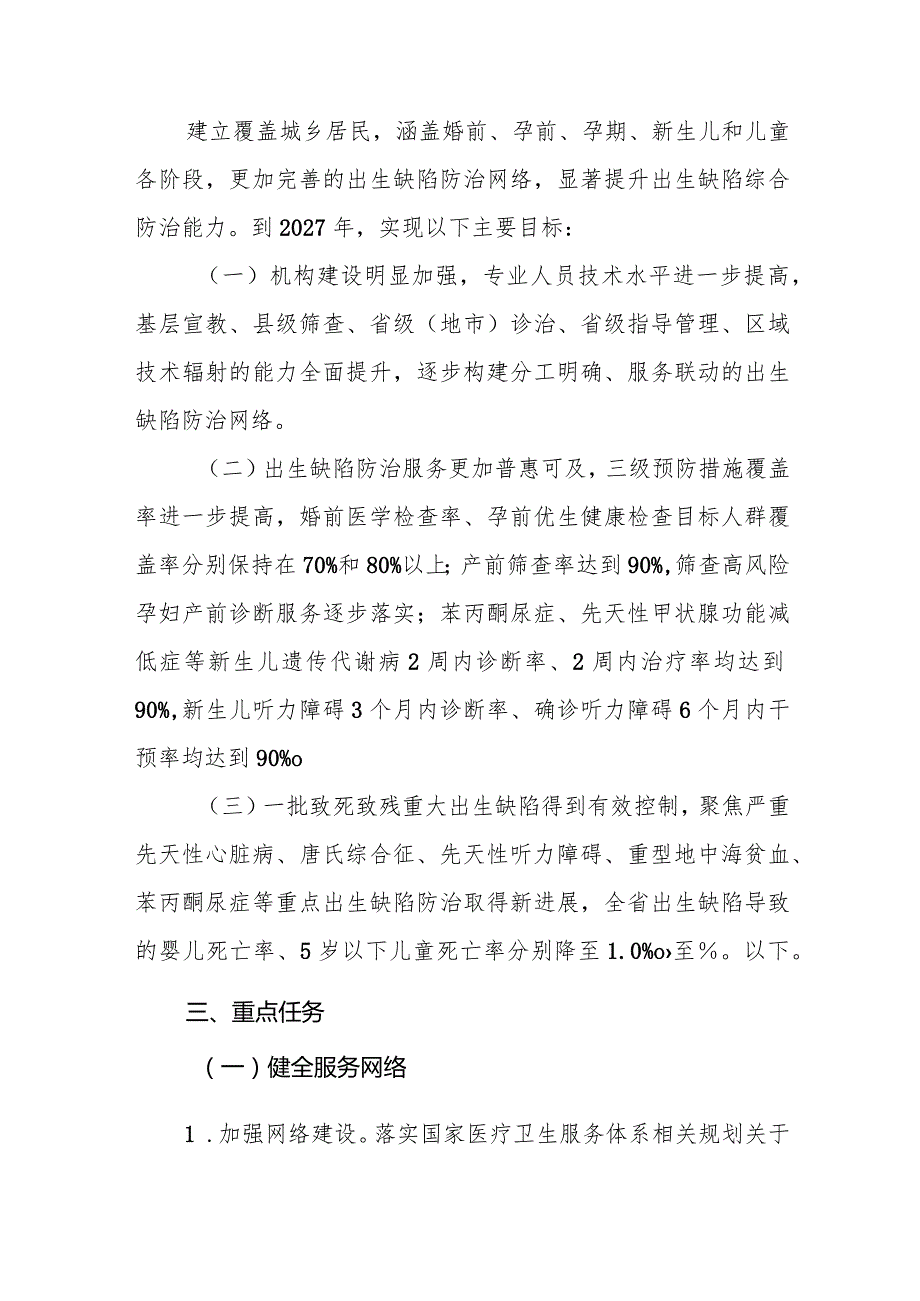 建立覆盖城乡居民，涵盖婚前、孕前、孕期、新生儿和儿童
各阶段，更加完善的出生缺陷防治网络，显著提升出生缺陷综合
防治能力。到 2027 年，实现以下主要目标：
（一）机构建设明显加强，专业人员技术水平进一步提高，
基层宣教、县级筛查、省级（地市）诊治、省级指导管理、区域
技术辐射的能力全面提升，逐步构建分工明确、服务联动的出生
缺陷防治网络。
（二）出生缺陷防治服务更加普惠可及，三级预防措施覆盖
率进一步提高，婚前医学检查率、孕前优生健康检查目标人群覆
盖率分别保持在 70%和 80%以上；产前筛查率达到 90%,筛查高风险
孕妇产前诊断服务逐步落实；苯丙酮尿症、先天性甲状腺功能减
低症等新生儿遗传代谢病 2 周内诊断率、2 周内治疗率均达到
90%,新生儿听力障碍 3 个月内诊断率、确诊听力障碍 6 个月内干
预率均达到 90%o
（三）一批致死致残重大出生缺陷得到有效控制，聚焦严重
先天性心脏病、唐氏综合征、先天性听力障碍、重型地中海贫血、
苯丙酮尿症等重点出生缺陷防治取得新进展，全省出生缺陷导致
的婴儿死亡率、5 岁以下儿童死亡率分别降至 1.0‰›至%。以下。
三、重点任务
（一）健全服务网络
1 .加强网络建设。落实国家医疗卫生服务体系相关规划关于